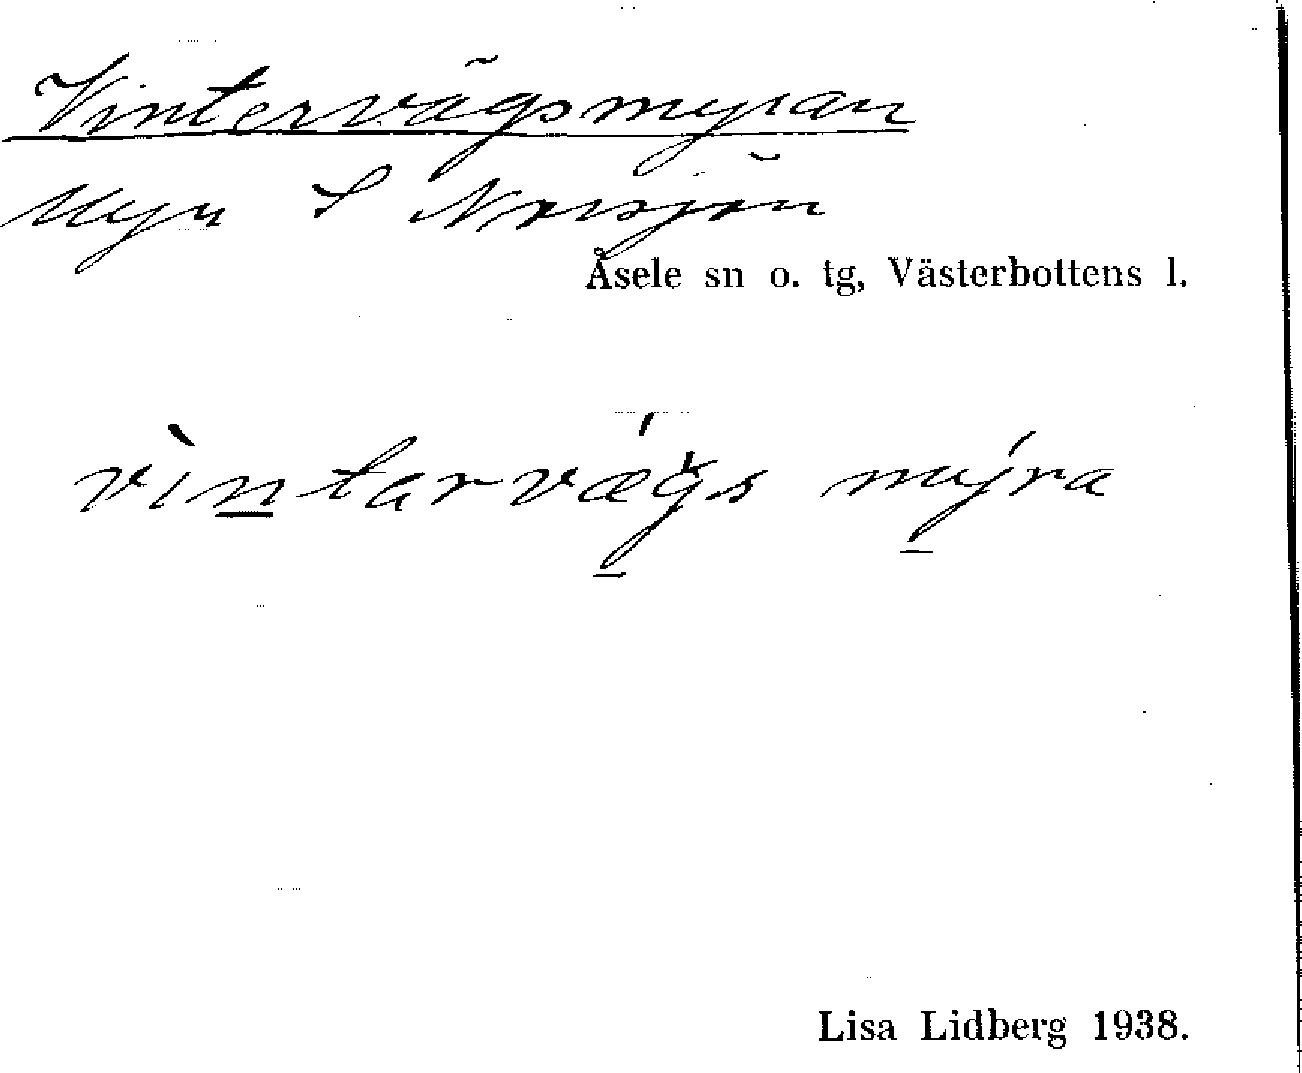 Vintervägsmyran
Myr S Norsjön
Åsele sn o. tg, Västerbottens l.
vìntarvǽgs mýra
Lisa Lidberg 1938.